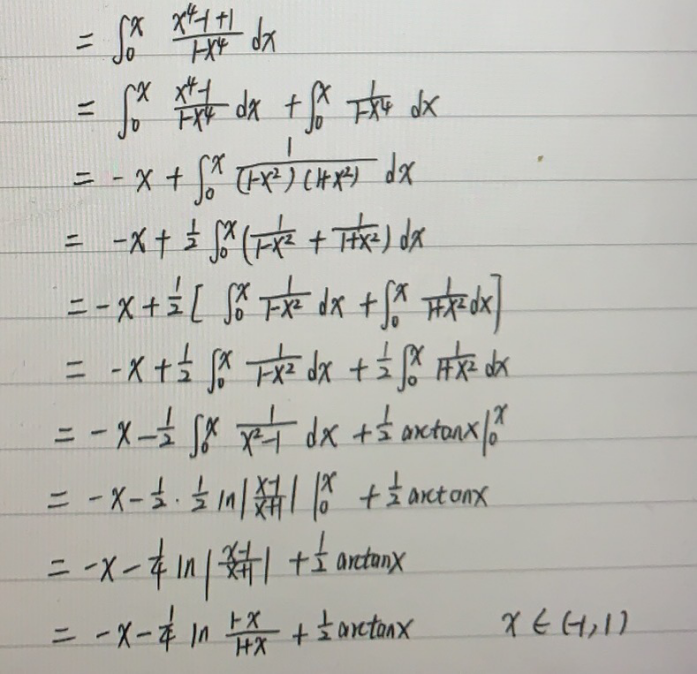 = ∫₀ˣ (x⁴-1+1)/(1-x⁴) dx
= ∫₀ˣ (x⁴-1)/(1-x⁴) dx + ∫₀ˣ 1/(1-x⁴) dx
= -x + ∫₀ˣ 1/((1-x²)(1+x²)) dx
= -x + 1/2 ∫₀ˣ (1/(1-x²) + 1/(1+x²)) dx
= -x + 1/2 [ ∫₀ˣ 1/(1-x²) dx + ∫₀ˣ 1/(1+x²) dx ]
= -x + 1/2 ∫₀ˣ 1/(1-x²) dx + 1/2 ∫₀ˣ 1/(1+x²) dx
= -x - 1/2 ∫₀ˣ 1/(x²-1) dx + 1/2 arctanx |₀ˣ
= -x - 1/2 · 1/2 ln|(x-1)/(x+1)| |₀ˣ + 1/2 arctanx
= -x - 1/4 ln|(x-1)/(x+1)| + 1/2 arctanx
= -x - 1/4 ln (1-x)/(1+x) + 1/2 arctanx x ∈ (-1,1)